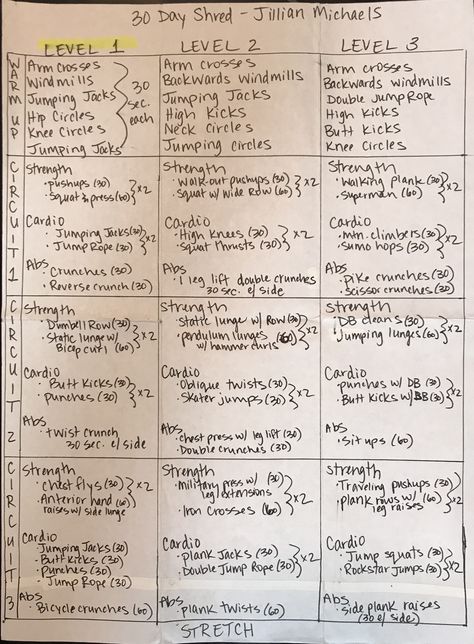 30 Day Shred - Jillian Michaels
LEVEL 1
LEVEL 2
LEVEL 3
WARM UP
Arm Crosses
Windmills
Jumping Jacks
Hip Circles
Knee Circles
Jumping Jacks
30 sec. each
Arm crosses
Backwards windmills
Jumping Jacks
High Kicks
Neck Circles
Jumping circles
Arm crosses
Backwards windmills
Double Jump Rope
High Kicks
Butt Kicks
Knee Circles
CIRCUIT 1
Strength
· pushups (30)
· Squat & press (60)
x2
Cardio
· Jumping Jacks (30)
· Jump Rope (30)
x2
Abs
· Crunches (30)
· Reverse crunch (30)
Strength
· Walk-out pushups (30)
· Squat w/ Wide Row (60)
x2
Cardio
· High Knees (30)
· squat thrusts (30)
x2
Abs
· 1 leg lift double crunches
30 sec. e/ side
Strength
· Walking plank (30)
· superman (60)
x2
Cardio
· mtn. climbers (30)
· sumo hops (30)
x2
Abs
· Pike crunches (30)
· scissor crunches (30)
CIRCUIT 2
Strength
· Dumbell Row (30)
· Static lunge w/
Bicep curl (60)
x2
Cardio
· Butt Kicks (30)
· punches (30)
x2
Abs
· twist crunch
30 sec. e/ side
Strength
· static lunge w/ Row (30)
· pendulum lunges (60)
w/ hammer curls
x2
Cardio
· Oblique twists (30)
· Skater jumps (30)
x2
Abs
· chest press w/ leg lift (30)
· Double crunches (30)
Strength
· DB cleans (30)
· Jumping lunges (60)
x2
Cardio
· punches w/ DB (30)
· Butt Kicks w/ DB (30)
x2
Abs
· Sit ups (60)
CIRCUIT 3
Strength
· chest flys (30)
· Anterior hand (60)
raises w/ side lunge
x2
Cardio
· Jumping Jacks (30)
· Butt Kicks (30)
· Punches (30)
· Jump Rope (30)
Abs
· Bicycle crunches (60)
Strength
· military press w/ (30)
leg extensions
· Iron Crosses (60)
x2
Cardio
· plank Jacks (30)
· Double Jump Rope (30)
x2
Abs
· plank twists (60)
Strength
· Traveling pushups (30)
· plank rows w/ (60)
leg raises
x2
Cardio
· Jump squats (30)
· Rockstar jumps (30)
x2
Abs
· side plank raises
(30 e/ side)
STRETCH